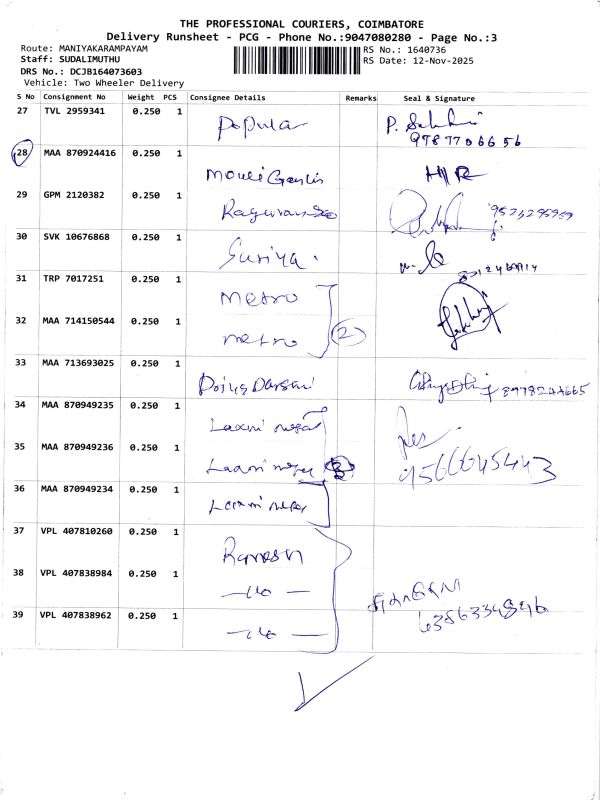 THE PROFESSIONAL COURIERS, COIMBATORE
Delivery Runsheet - PCG - Phone No.:9047080280 - Page No.:3
Route: MANIYAKARAMPAYAM RS No.: 1640736
Staff: SUDALIMUTHU RS Date: 12-Nov-2025
DRS No.: DCJB164073603
Vehicle: Two Wheeler Delivery
S No Consignment No Weight PCS Consignee Details Remarks Seal & Signature
27 TVL 2959341 0.250 1 Popular P.
9787706656
28 MAA 870924416 0.250 1
29 GPM 2120382 0.250 1
30 SVK 10676868 0.250 1 Suriya.
31 TRP 7017251 0.250 1 Metro
32 MAA 714150544 0.250 1 metro 2
33 MAA 713693025 0.250 1
34 MAA 870949235 0.250 1 Laxmi
35 MAA 870949236 0.250 1 Laxmi 3
9566645443
36 MAA 870949234 0.250 1 Laxmi
37 VPL 407810260 0.250 1 Ramesh
38 VPL 407838984 0.250 1
39 VPL 407838962 0.250 1